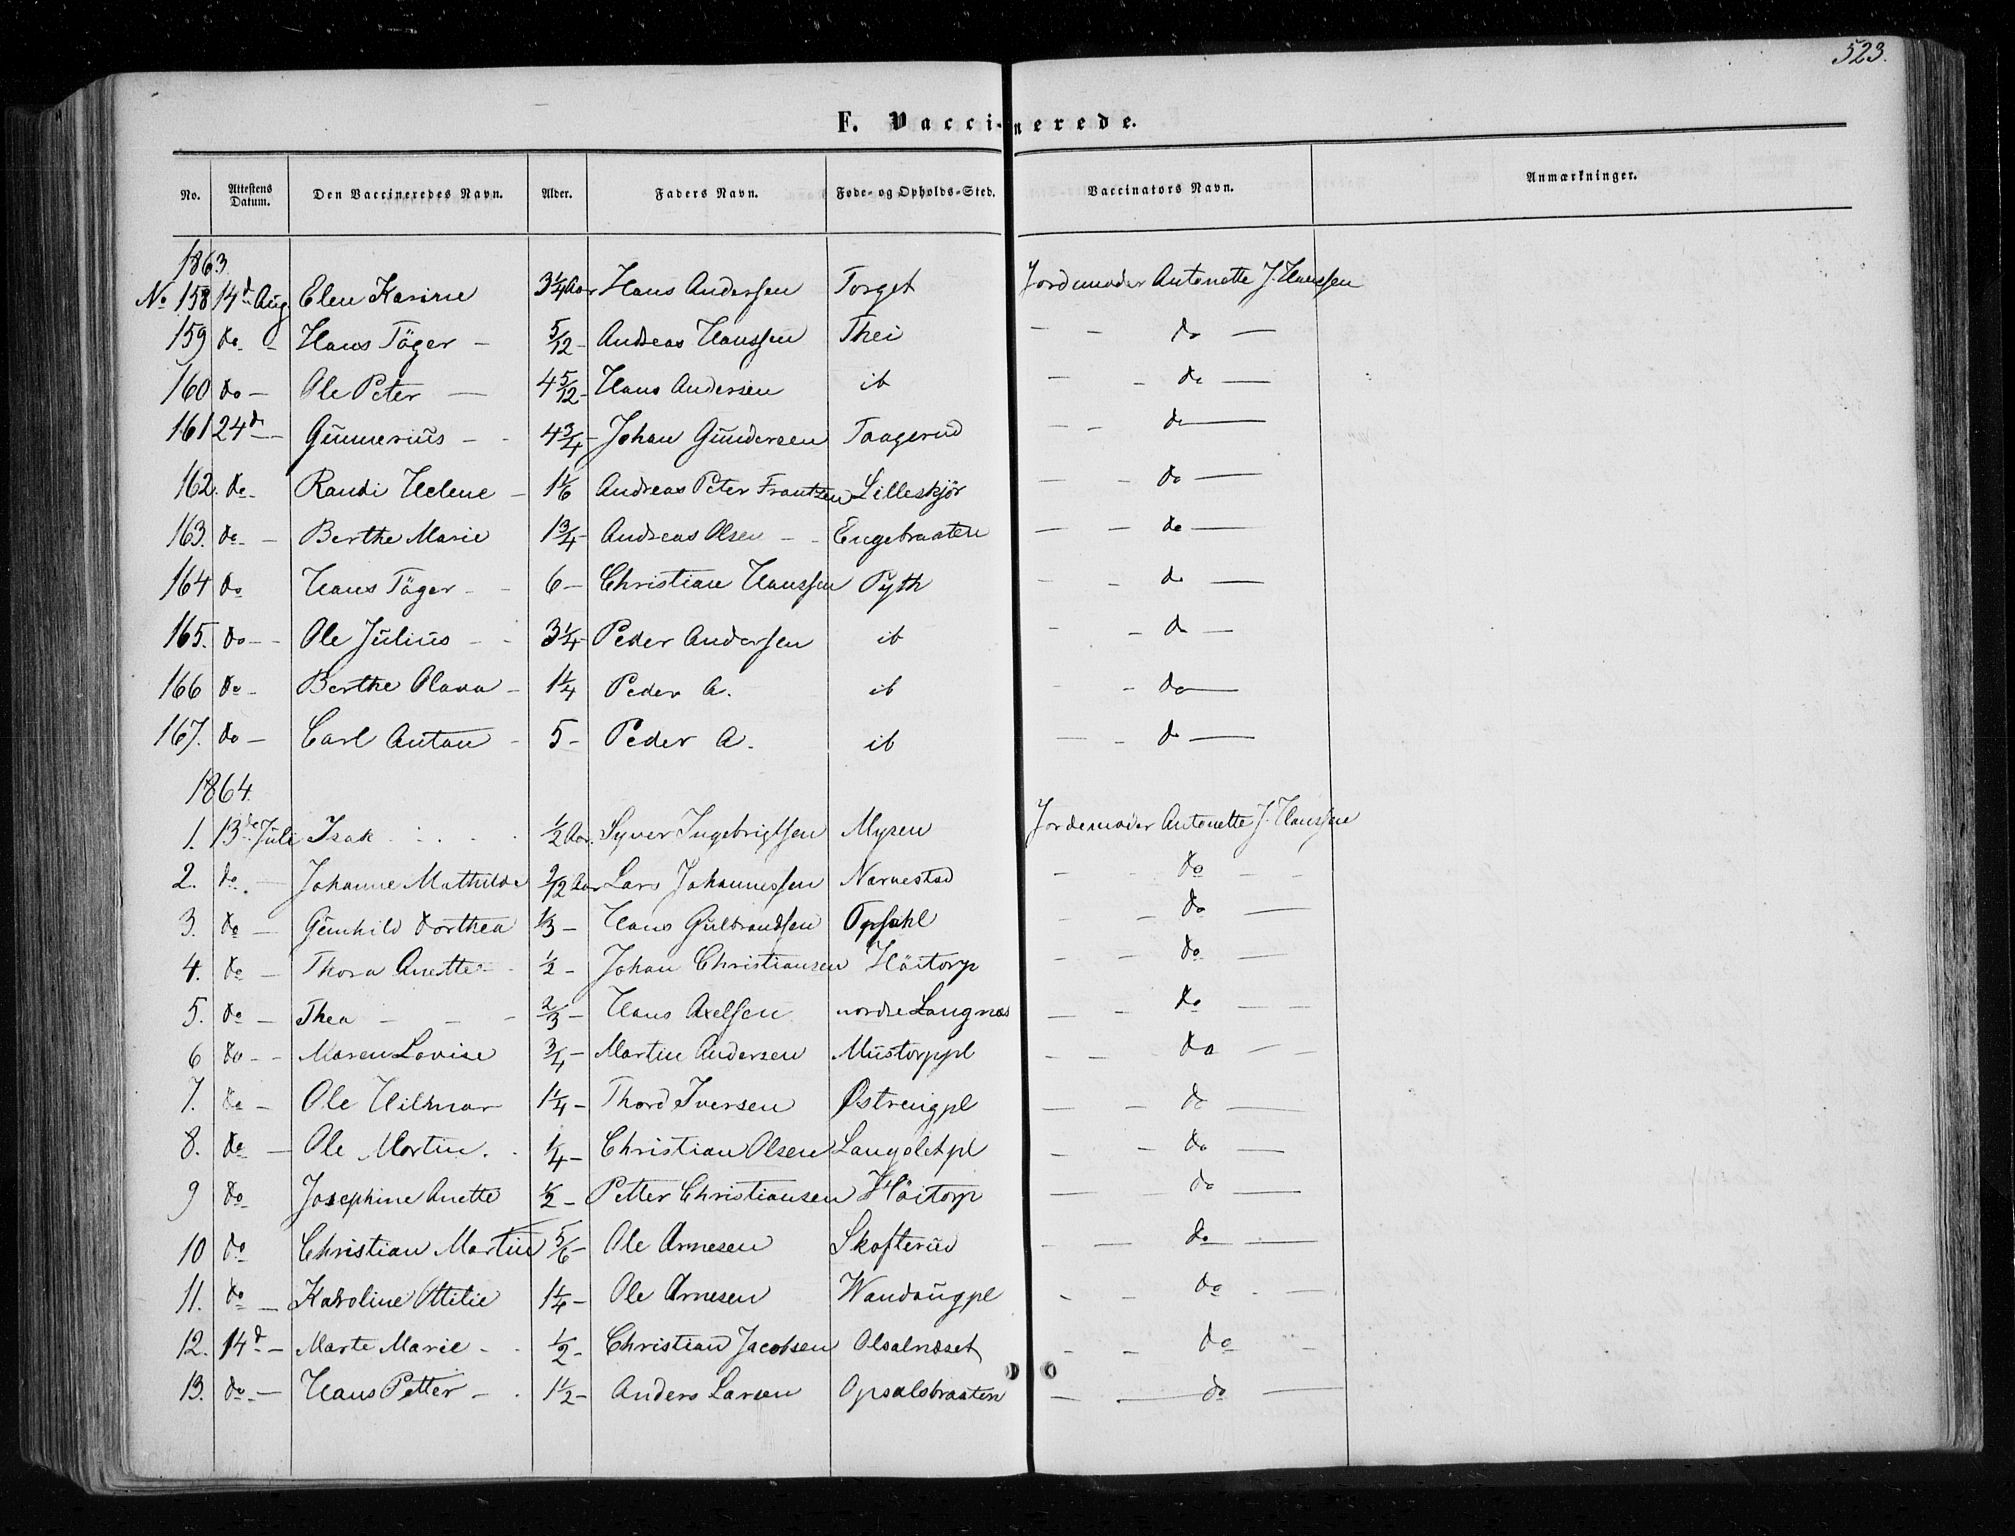 523.
F. Vaccinerede.
No. Attestens Datum. Den Vaccineredes Navn. Alder. Faders Navn. Føde- og Opholds-Sted. Vaccinators Navn. Anmærkninger.
1863.
No 158 14d Aug Elen Karine 3 1/4 Aar Hans Andersen Torget Jordemoder Antonette J. Hanssen
159 do - Hans Töger - 5/12 - Andreas Hanssen Thei - - do -
160 do - Ole Peter - 4 5/12 - Hans Andersen ib - - do -
161 24d - Gunnerius - - 4 3/4 - Johan Gundersen Taagerud - - do -
162. do - Randi Helene - 1 1/6 Andreas Peter Frantzen Lilleskjör - - do -
163. do - Berthe Marie 1 3/4 - Andreas Olsen - - Engebraaten - - do -
164 do Hans Töger - - 6 - Christian Hanssen Pyth - - do -
165. do - - Ole Julius - - 3 1/4 - Peder Anderssen ib - - do -
166 do - Berthe Olava - 1 1/4 Peder A. ib - - do -
167. do - Carl Anton - 5 - Peder A. ib - - do -
1864.
1. 13de Juli Isak 1/2 Aar. Syver Ingebrigtsen Mysen Jordemoder Antonette J. Hanssen
2. do. - Johanne Mathilde 9/12 Aar Lars Johannessen Narvestad - - do - -
3. do - Gunhild Dorthea 1/3 - Hans Gulbrandsen Opsahl - - do -
4. do - Thora Anette - - 1/2 - Johan Christiansen Höitorp - - do -
5. do - Thea - - - 2/3 - Hans Axelsen nordre Langnæs - - do - -
6 do - - Maren Lovise 3/4 - Martin Andersen Mustorppl - - do - -
7. do - Ole Hilmar 1 1/4 - Thord Iversen Østrengpl - - do -
8. do - Ole Martin. - 1/4 - Christian Olsen Langsletpl - - do -
9 do Josephine Anette 1/2 - Petter Christiansen Höitorp - - do -
10 do Christian Martin 5/6 - Ole Arnesen Skofterud - - do -
11. do - Karoline Ottilie 1 1/4 - Ole Arnesen Wandaugpl - - do - -
12. 14d - Marte Marie - - 1/2 - Christian Jacobsen Olsalnæset - - do -
13. do - Hans Petter - - 1 1/2 - Anders Larsen Opsalsbraaten - - do -